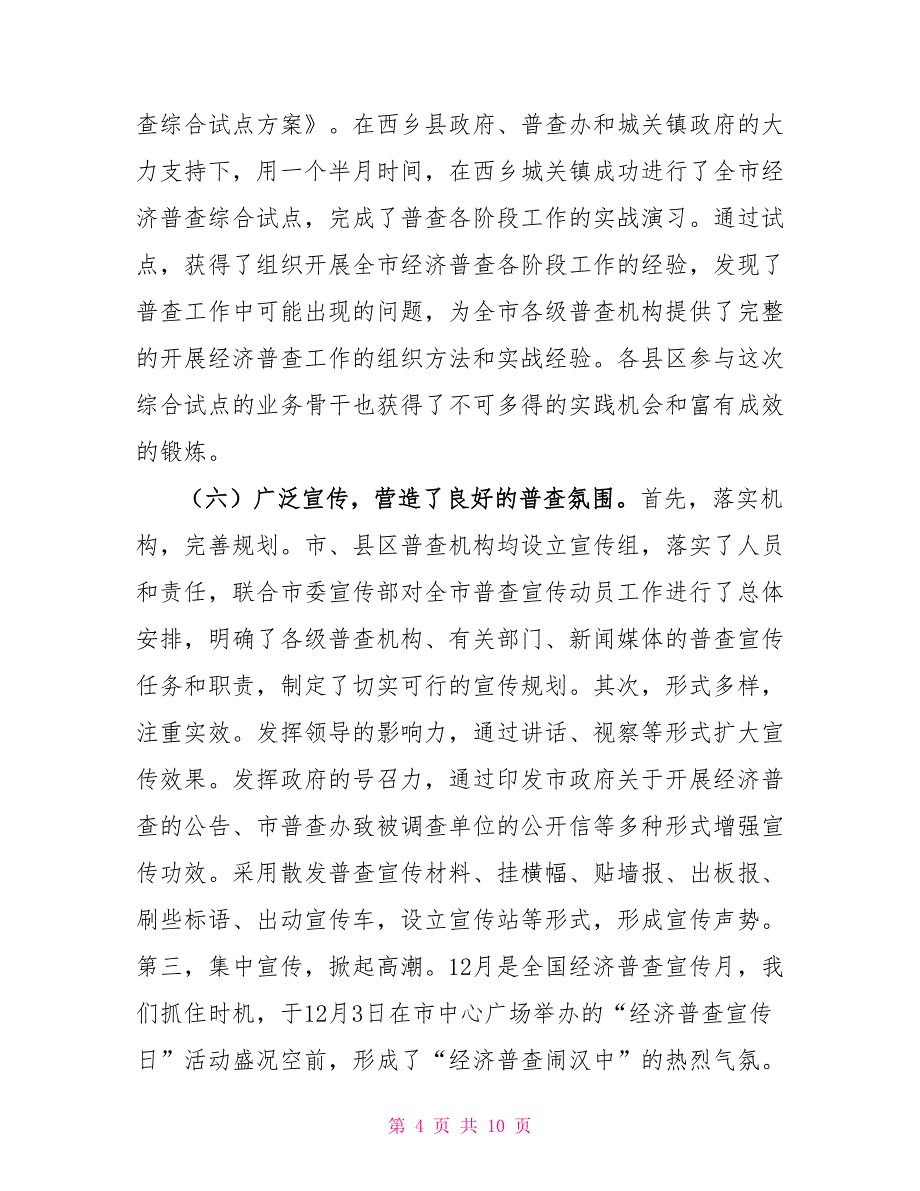 查综合试点方案》。在西乡县政府、普查办和城关镇政府的大
力支持下，用一个半月时间，在西乡城关镇成功进行了全市经
济普查综合试点，完成了普查各阶段工作的实战演习。通过试
点，获得了组织开展全市经济普查各阶段工作的经验，发现了
普查工作中可能出现的问题，为全市各级普查机构提供了完整
的开展经济普查工作的组织方法和实战经验。各县区参与这次
综合试点的业务骨干也获得了不可多得的实践机会和富有成效
的锻炼。
（六）广泛宣传，营造了良好的普查氛围。首先，落实机
构，完善规划。市、县区普查机构均设立宣传组，落实了人员
和责任，联合市委宣传部对全市普查宣传动员工作进行了总体
安排，明确了各级普查机构、有关部门、新闻媒体的普查宣传
任务和职责，制定了切实可行的宣传规划。其次，形式多样，
注重实效。发挥领导的影响力，通过讲话、视察等形式扩大宣
传效果。发挥政府的号召力，通过印发市政府关于开展经济普
查的公告、市普查办致被调查单位的公开信等多种形式增强宣
传功效。采用散发普查宣传材料、挂横幅、贴墙报、出板报、
刷些标语、出动宣传车，设立宣传站等形式，形成宣传声势。
第三，集中宣传，掀起高潮。12月是全国经济普查宣传月，我
们抓住时机，于12月3日在市中心广场举办的“经济普查宣传
日”活动盛况空前，形成了“经济普查闹汉中”的热烈气氛。
第 4 页 共 10 页